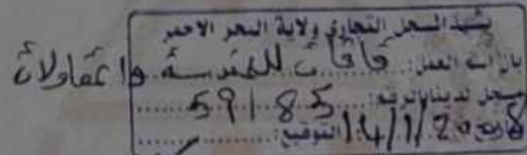 يشهد المسجل التجاري ولاية البحر الاحمر
بان اسم العمل: قاقات للهندسة والمقاولات
مسجل لدينا بالرقم: 59185
التوقيع: